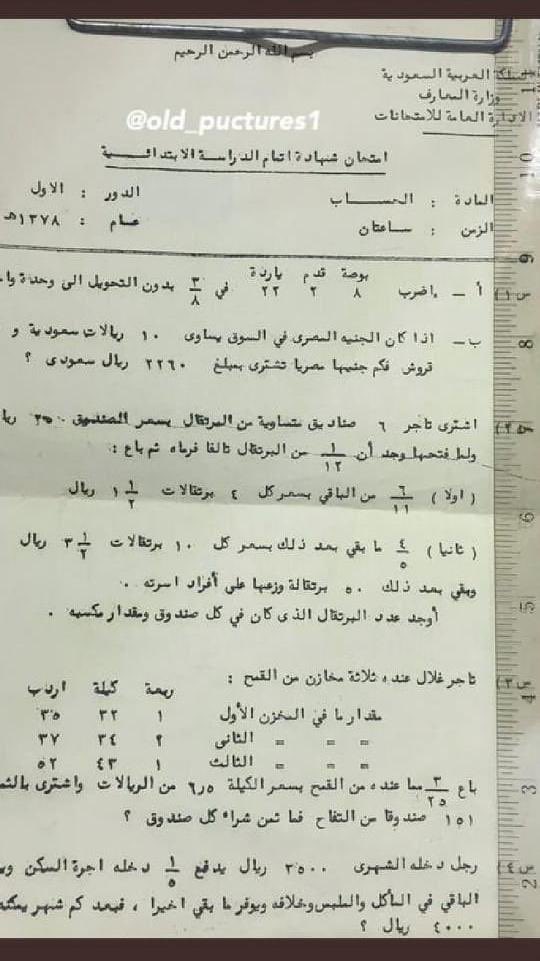 بسم الله الرحمن الرحيم
المملكة العربية السعودية
وزارة المعارف
الادارة العامة للامتحانات
@old_puctures1
امتحان شهادة اتمام الدراسة الابتدائية
المادة : الحساب الدور : الاول
الزمن : ساعتان عام : ١٣٧٨هـ
بوصة قدم ياردة
س١) أ – اضرب ٨ ٢ ٢٢ في ٣/٨ بدون التحويل الى وحدة
ب – اذا كان الجنيه المصرى في السوق يساوى ١٠ ريالات سعودية و
قروش فكم جنيها مصريا تشترى بمبلغ ٢٢٦٠ ريال سعودى ؟
س٢) اشترى تاجر ٦ صناديق متساوية من البرتقال بسعر الصندوق ٣٥
ولما فتحها وجد أن ١/١٢ من البرتقال تالفا فرماه ثم باع :
( اولا ) ٦/١١ من الباقي بسعر كل ٤ برتقالات ١ ١/٢ ريال
( ثانيا ) ٤/٥ ما بقي بعد ذلك بسعر كل ١٠ برتقالات ٣ ١/٢ ريال
وبقي بعد ذلك ٥٠ برتقالة وزعها على أفراد اسرته .
أوجد عدد البرتقال الذى كان في كل صندوق ومقدار مكسبه .
س٣) تاجر غلال عنده ثلاثة مخازن من القمح :
ربعة كيلة اردب
مقدار ما في المخزن الأول ١ ٣٢ ٣٥
= = = الثانى ٢ ٣٤ ٣٧
= = = الثالث ١ ٤٣ ٥٢
باع ٣/٢٥ مما عنده من القمح بسعر الكيلة ٦٫٥ من الريالات واشترى
١٥١ صندوقا من التفاح فما ثمن شراء كل صندوق ؟
س٤) رجل دخله الشهرى ٣٥٠٠ ريال يدفع ١/٥ دخله اجرة السكن
الباقي في المأكل والملبس وخلافه ويوفر ما بقي اخيرا ، فبعد كم شهر
٤٠٠٠ ريال ؟
10
9
8
6
5
4
3
2